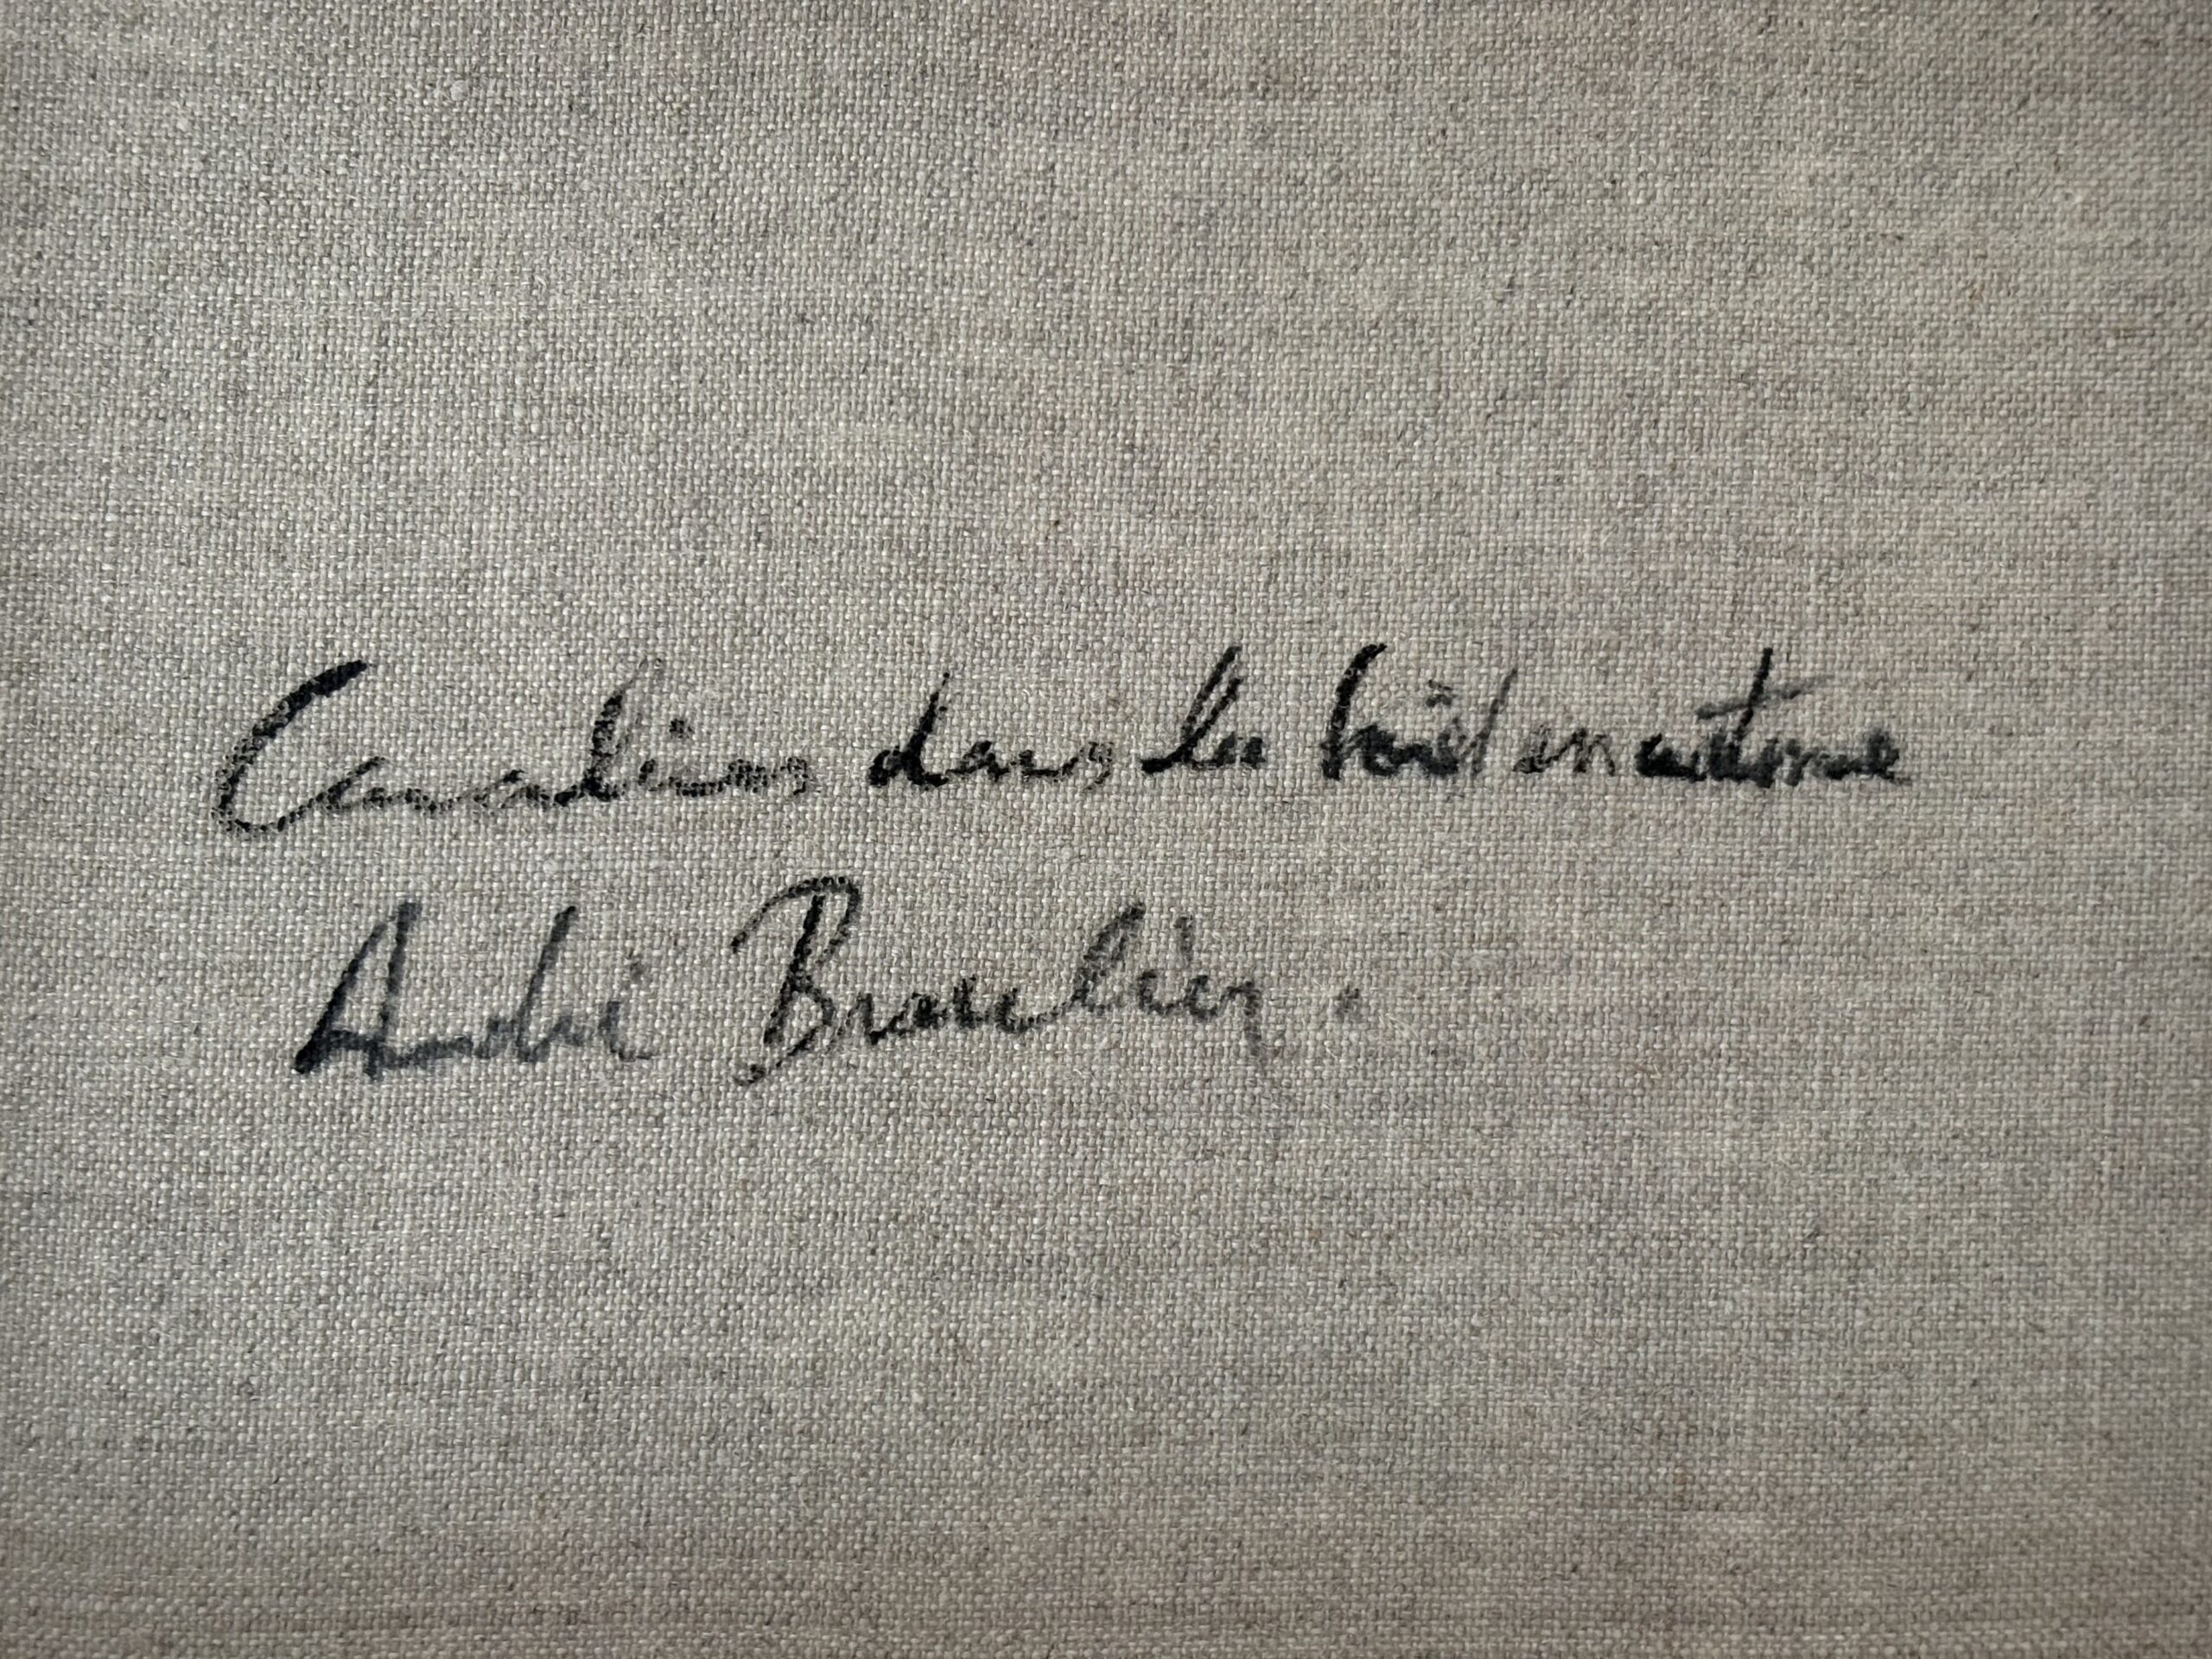 Cavaliers dans la forêt en automne
André Brasilier.